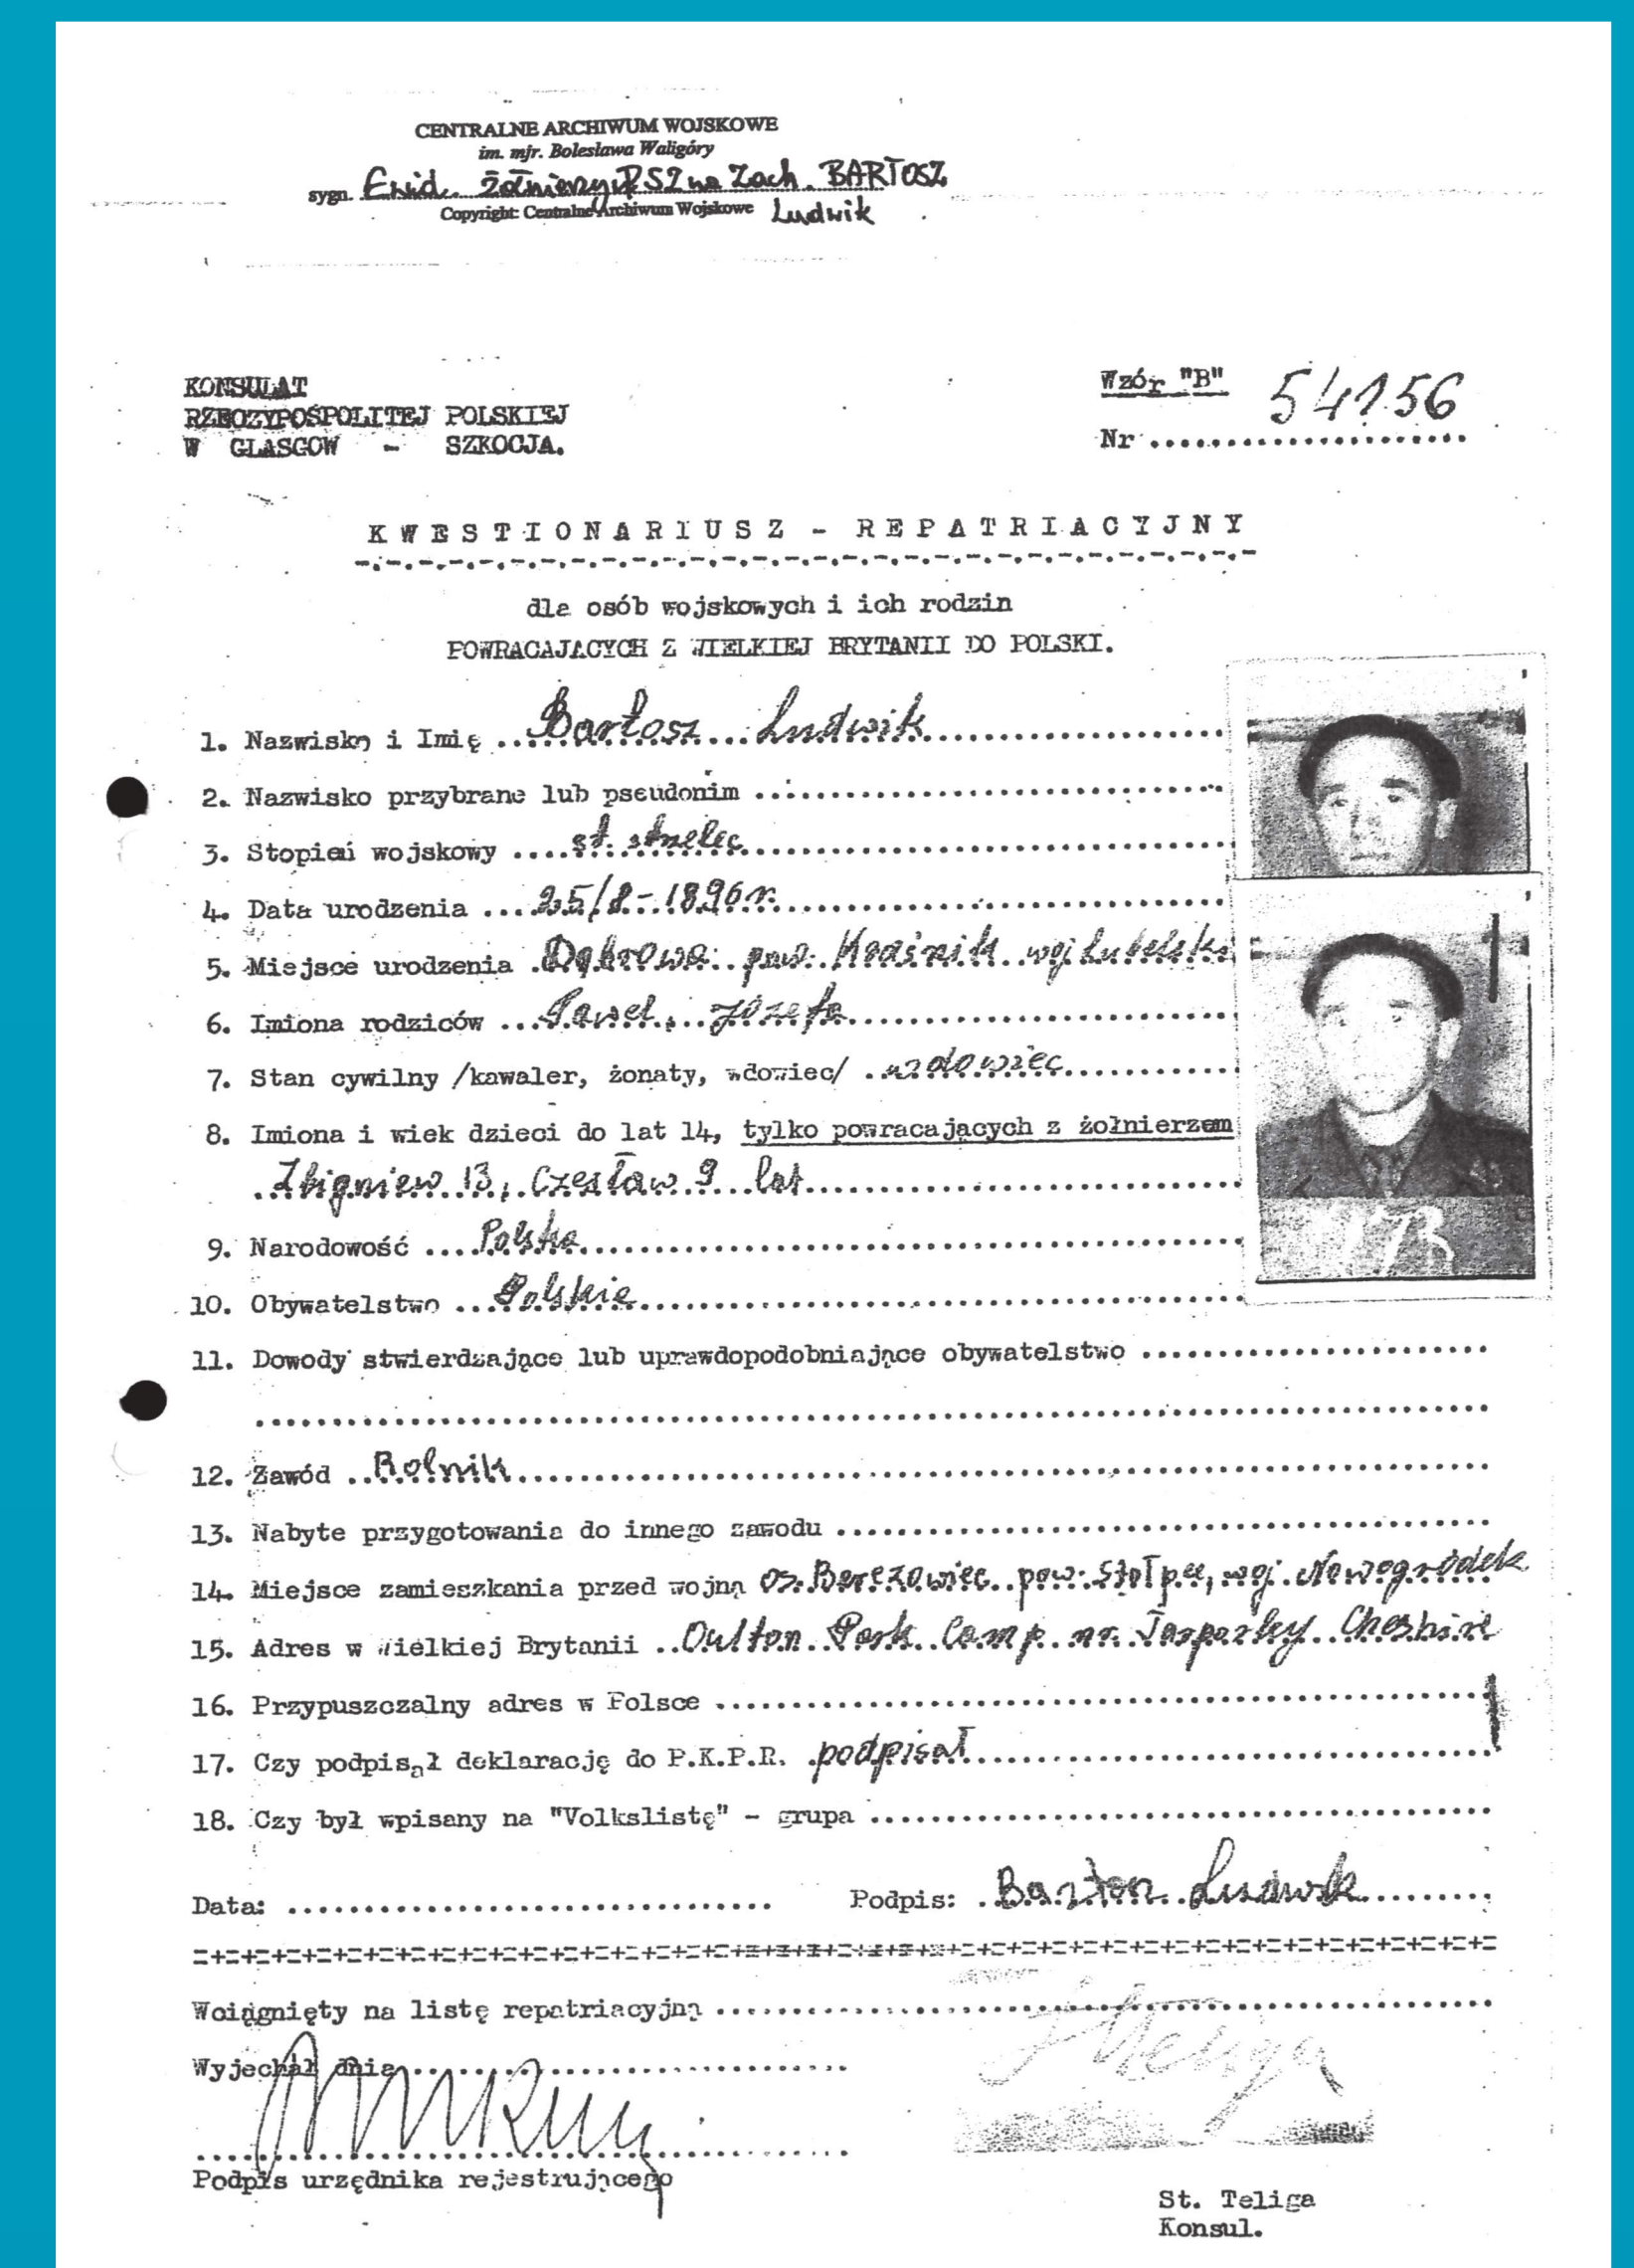 CENTRALNE ARCHIWUM WOJSKOWE
im. mjr. Bolesława Waligóry
sygn. Ewid. Żołnierzy PSZ na Zach. BARTOSZ
Copyright: Centralne Archiwum Wojskowe Ludwik
KONSULAT
RZECZYPOSPOLITEJ POLSKIEJ
W GLASGOW - SZKOCJA.
Wzór "B" 54156
Nr ....................
KWESTIONARIUSZ - REPATRIACYJNY
dla osób wojskowych i ich rodzin
POWRACAJĄCYCH Z WIELKIEJ BRYTANII DO POLSKI.
1. Nazwisko i Imię Bartosz Ludwik
2. Nazwisko przybrane lub pseudonim
3. Stopień wojskowy st. strzelec
4. Data urodzenia 25/8-1896 r.
5. Miejsce urodzenia Dąbrowa pow. Kraśnik woj Lubelski
6. Imiona rodziców Paweł, Józefa
7. Stan cywilny /kawaler, żonaty, wdowiec/ wdowiec
8. Imiona i wiek dzieci do lat 14, tylko powracających z żołnierzem
Zbigniew 13, Czesław 9 lat
9. Narodowość Polska
10. Obywatelstwo Polskie
173
11. Dowody stwierdzające lub uprawdopodobniające obywatelstwo
12. Zawód Rolnik
13. Nabyte przygotowania do innego zawodu
14. Miejsce zamieszkania przed wojną os. Berezowiec pow. Stołpce, woj. Nowogródek
15. Adres w Wielkiej Brytanii Oulton Park Camp nr. Tarporley Cheshire
16. Przypuszczalny adres w Polsce
17. Czy podpisał deklarację do P.K.P.R. podpisał
18. Czy był wpisany na "Volkslistę" - grupa
Data: Podpis: Bartosz Ludwik
Wciągnięty na listę repatriacyjną
Wyjechał dnia
Podpis urzędnika rejestrującego
St. Teliga
Konsul.